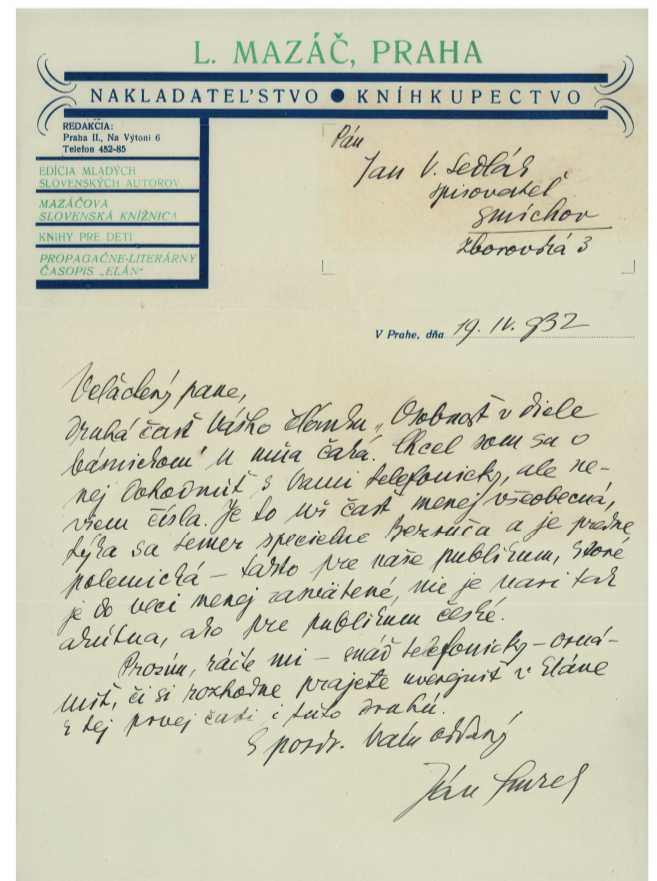 L. MAZÁČ, PRAHA
NAKLADATEĽSTVO ● KNÍHKUPECTVO
REDAKCIA:
Praha II., Na Výtoni 6
Telefon 452-85
EDÍCIA MLADÝCH
SLOVENSKÝCH AUTOROV
MAZÁČOVA
SLOVENSKÁ KNIŽNICA
KNIHY PRE DETI
PROPAGAČNE-LITERÁRNY
ČASOPIS „ELÁN“
Pán
Jan V. Sedlák
spisovateľ
Smíchov
Zborovská 3
V Prahe, dňa 19. IV. 932
Veľactený pane,
druhá časť Vášho článku „Osobnosť v diele
básnickom“ u mňa čaká. Chcel som sa o
nej dohodnúť s Vami telefonicky, ale ne-
viem čísla. Je to už časť menej všeobecná,
týka sa temer specielne Bezruča a je
polemická – takto pre naše publikum, ktoré
je do veci menej zasvätené, nie je vari tak
akútna, ako pre publikum české.
Prosím, ráčte mi – snáď telefonicky – ozná-
miť, či si rozhodne prajete uverejniť v Eláne
k tej prvej časti i túto druhú.
S pozdr. Vám oddaný
Ján Smrek